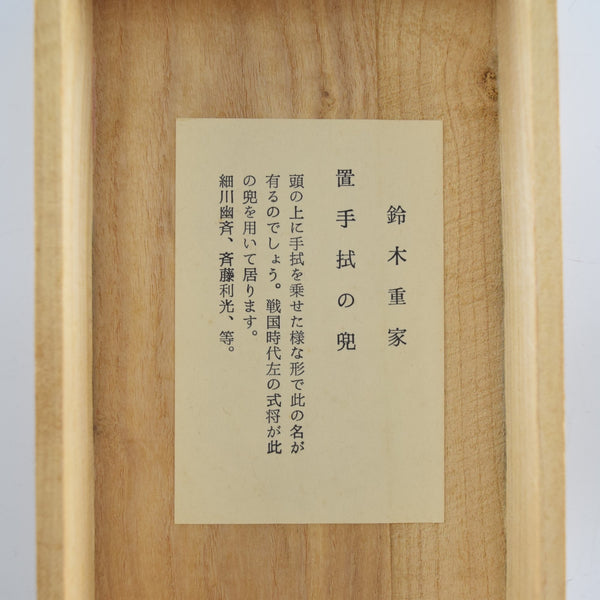 鈴木重家
置手拭の兜
頭の上に手拭を乗せた様な形で此の名が
有るのでしょう。戦国時代左の式将が此
の兜を用いて居ります。
細川幽斉、斉藤利光、等。